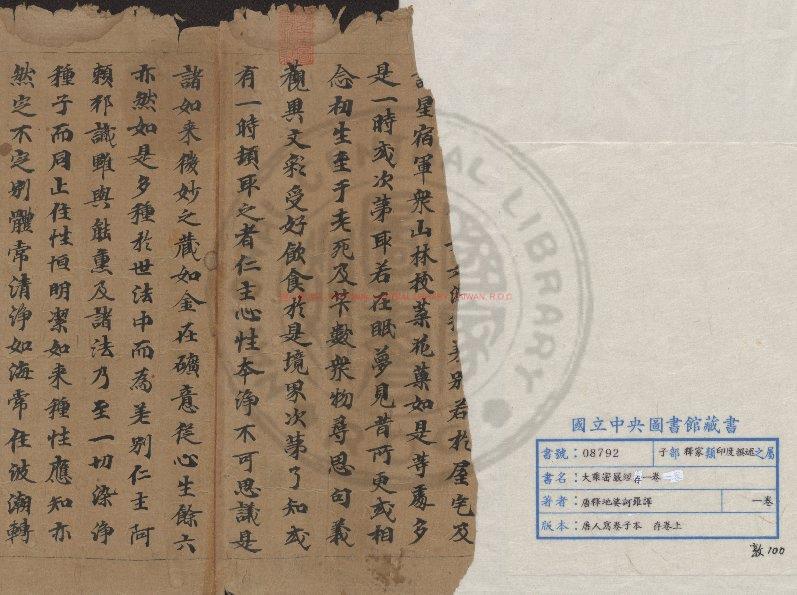 差別若於屋宅及
星宿軍衆山林枝葉花葉如是等處多
是一時或次第取若在眠夢見昔所更或相
念初生至于老死及數衆物尋思句義
觀異文彩受好飲食於是境界次第了知或
有一時頓取之者仁主心性本淨不可思議是
諸如来微妙之藏如金在礦意從心生餘六
亦然如是多種於世法中而為差別仁主阿
賴耶識雖與能熏及諸法乃至一切染淨
種子而同止住性恒明潔如来種性應知亦
然定不定別體常清淨如海常住波潮轉
國立中央圖書館藏書
書號：08792 子部 釋家類印度撰述之屬
書名：大乘密嚴經存一卷
著者：唐釋地婆訶羅譯 一卷
版本：唐人寫卷子本 存卷上
敦100
CENTRAL LIBRARY
TAIWAN, R.O.C